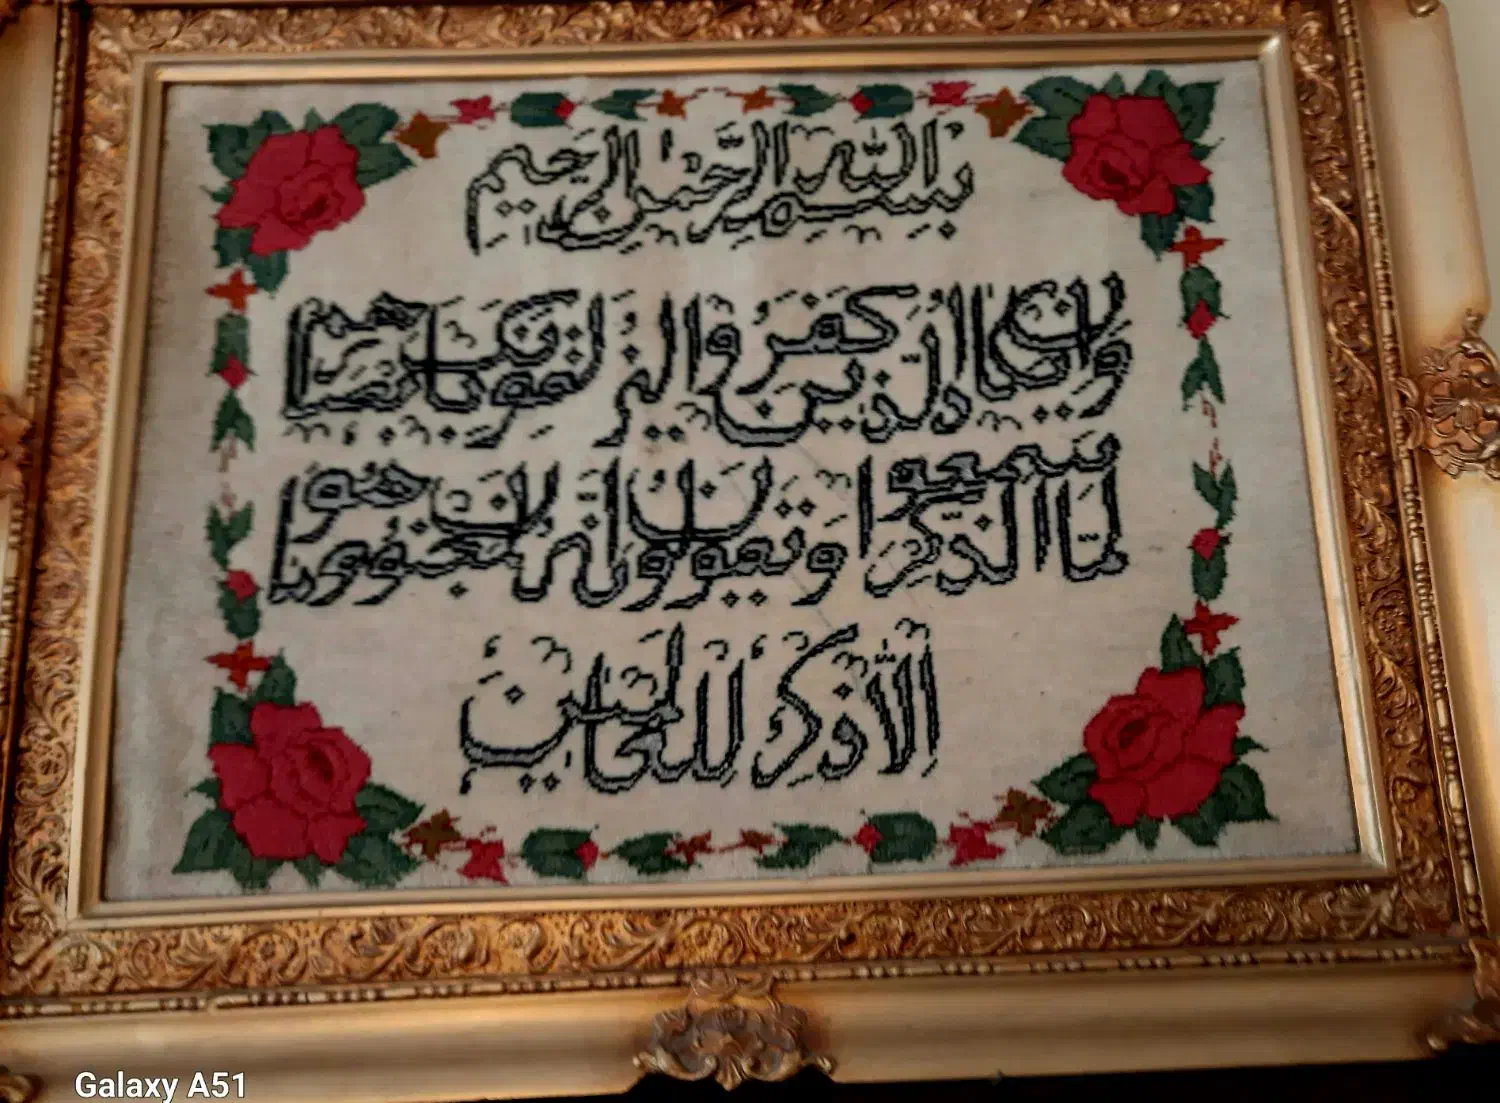 بسم الله الرحمن الرحيم
وان يكاد الذين كفروا ليزلقونك بابصارهم
لما سمعوا الذكر ويقولون انه لمجنون وما هو
الا ذكر للعالمين
Galaxy A51